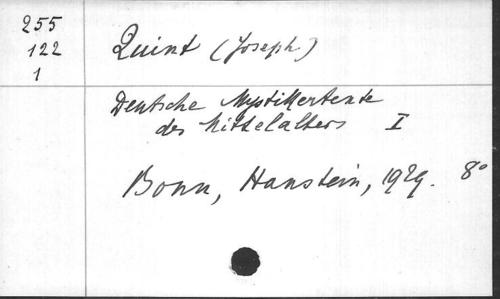 255
122
1
Quint (Joseph)
Deutsche Mystikertexte
des Mittelalters I
Bonn, Hanstein, 1929. 8°